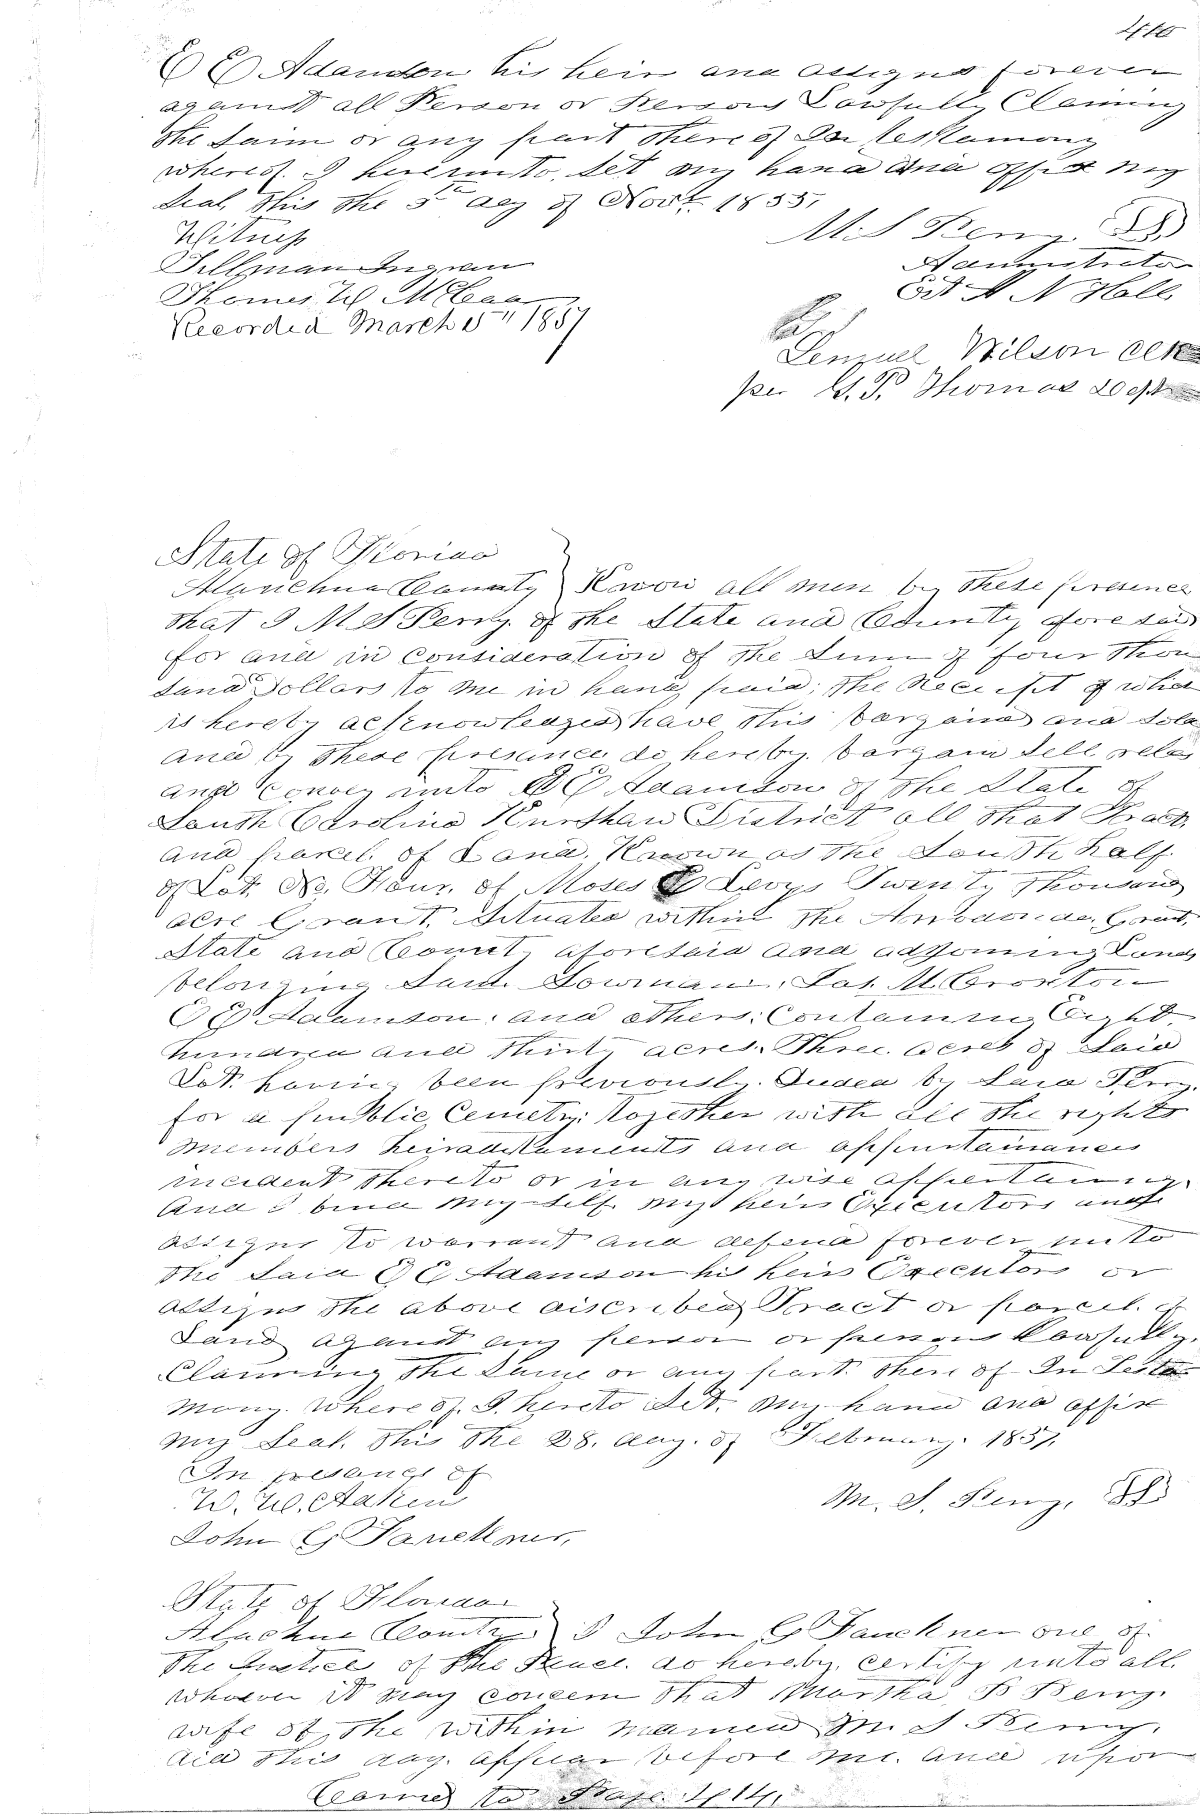 E E Adamson his heirs and assigns forever
against all Person or Persons Lawfully Claiming
the Saim or any part there of In testamony
where of I hereunto Set my hand and affix my
Seal, this the 5th day of Novr. 1855,
Witness
M. S Perry
Tillman Ingram
Administrator
Thomas W.
Est A N Hall
Recorded March 5th 1857
Lemuel Wilson Clk
per G. P. Thomas Dept
State of Florida
Alauchua County } Know all men by these presence
that I M S Perry of the State and County aforesaid
for and in consideration of the Sum of four Thou
sand Dollars to me in hand paid; the Receipt of which
is hereby acknowledged have this bargaind and Sold
and by these presence do hereby bargain Sell reles
and convey unto E E Adamson of the State of
South Carolina Kurshaw District all that Tract
and parcel of Land. Known as the South half
of Lot. No. Four. of Moses E Levys Twenty Thousand
acre Grant. Situated within the Grant,
State and County aforesaid and adjoining Lands
belonging Saml. Jas. M. Croxton
E E Adamson, and others; Containing Eight
hundred and thirty acres. Three acres of Said
Lot having been previously. Deeded by Said Perry.
for a public Cemetry; Together with all the rights
members heiraditaments and appurtainances
incident thereto or in any wise appertaining.
And I bind my-self my heirs Executors and
assigns to warrant and defend forever unto
the Said E E Adamson his heirs Executors or
assigns the above discribed Tract or parcel of
Land against any person or persons Lawfully.
Claiming the Same or any part there of In Testa
mony. where of. I hereto Set. my hand and affix
my Seal. this the 28. day. of February. 1857.
In presance of
W. W. Aaken
M. S. Perry,
John G Fauckner,
State of Florida
Alachua County } I John G Fauckner one of
the Justice of the Peace. do hereby. certify unto all
whoever it may concern that Martha P Perry.
wife of the within named M. S Perry.
did this day. appear before me. and upon
Carried to Page 414,